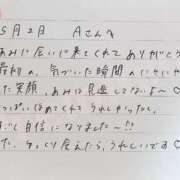 5月2日 Aさんへ
あみに会いに来てくれてありがとう
最初の、気づいた瞬間のにやにや
た笑顔、あみは見逃してないよ〜♡
っぱいほめてくれてうれしかったし
少し自信になりました〜!!
た、ゆっくり会えたら、うれしいです♡